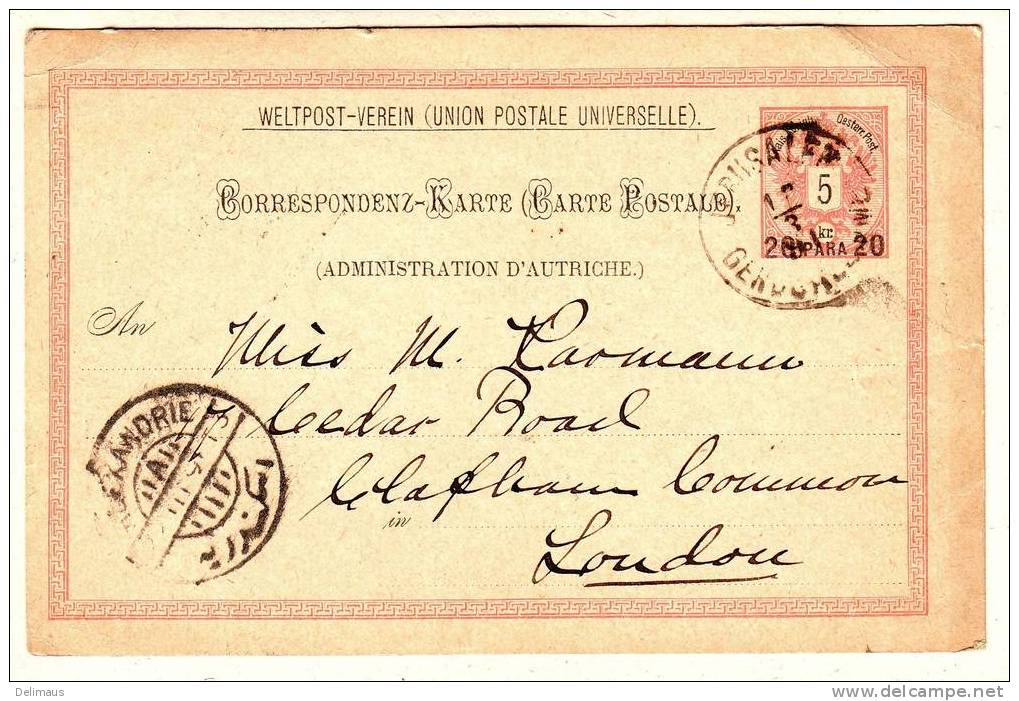 WELTPOST-VEREIN (UNION POSTALE UNIVERSELLE).
CORRESPONDENZ-KARTE (CARTE POSTALE).
(ADMINISTRATION D'AUTRICHE.)
Oesterr. Post.
5
kr.
20 PARA 20
JERUSALEM
An
Miss M. Karmann
Cedar Road
Clapham Common
in
London
ALEXANDRIE
Delimaus
www.delcampe.net